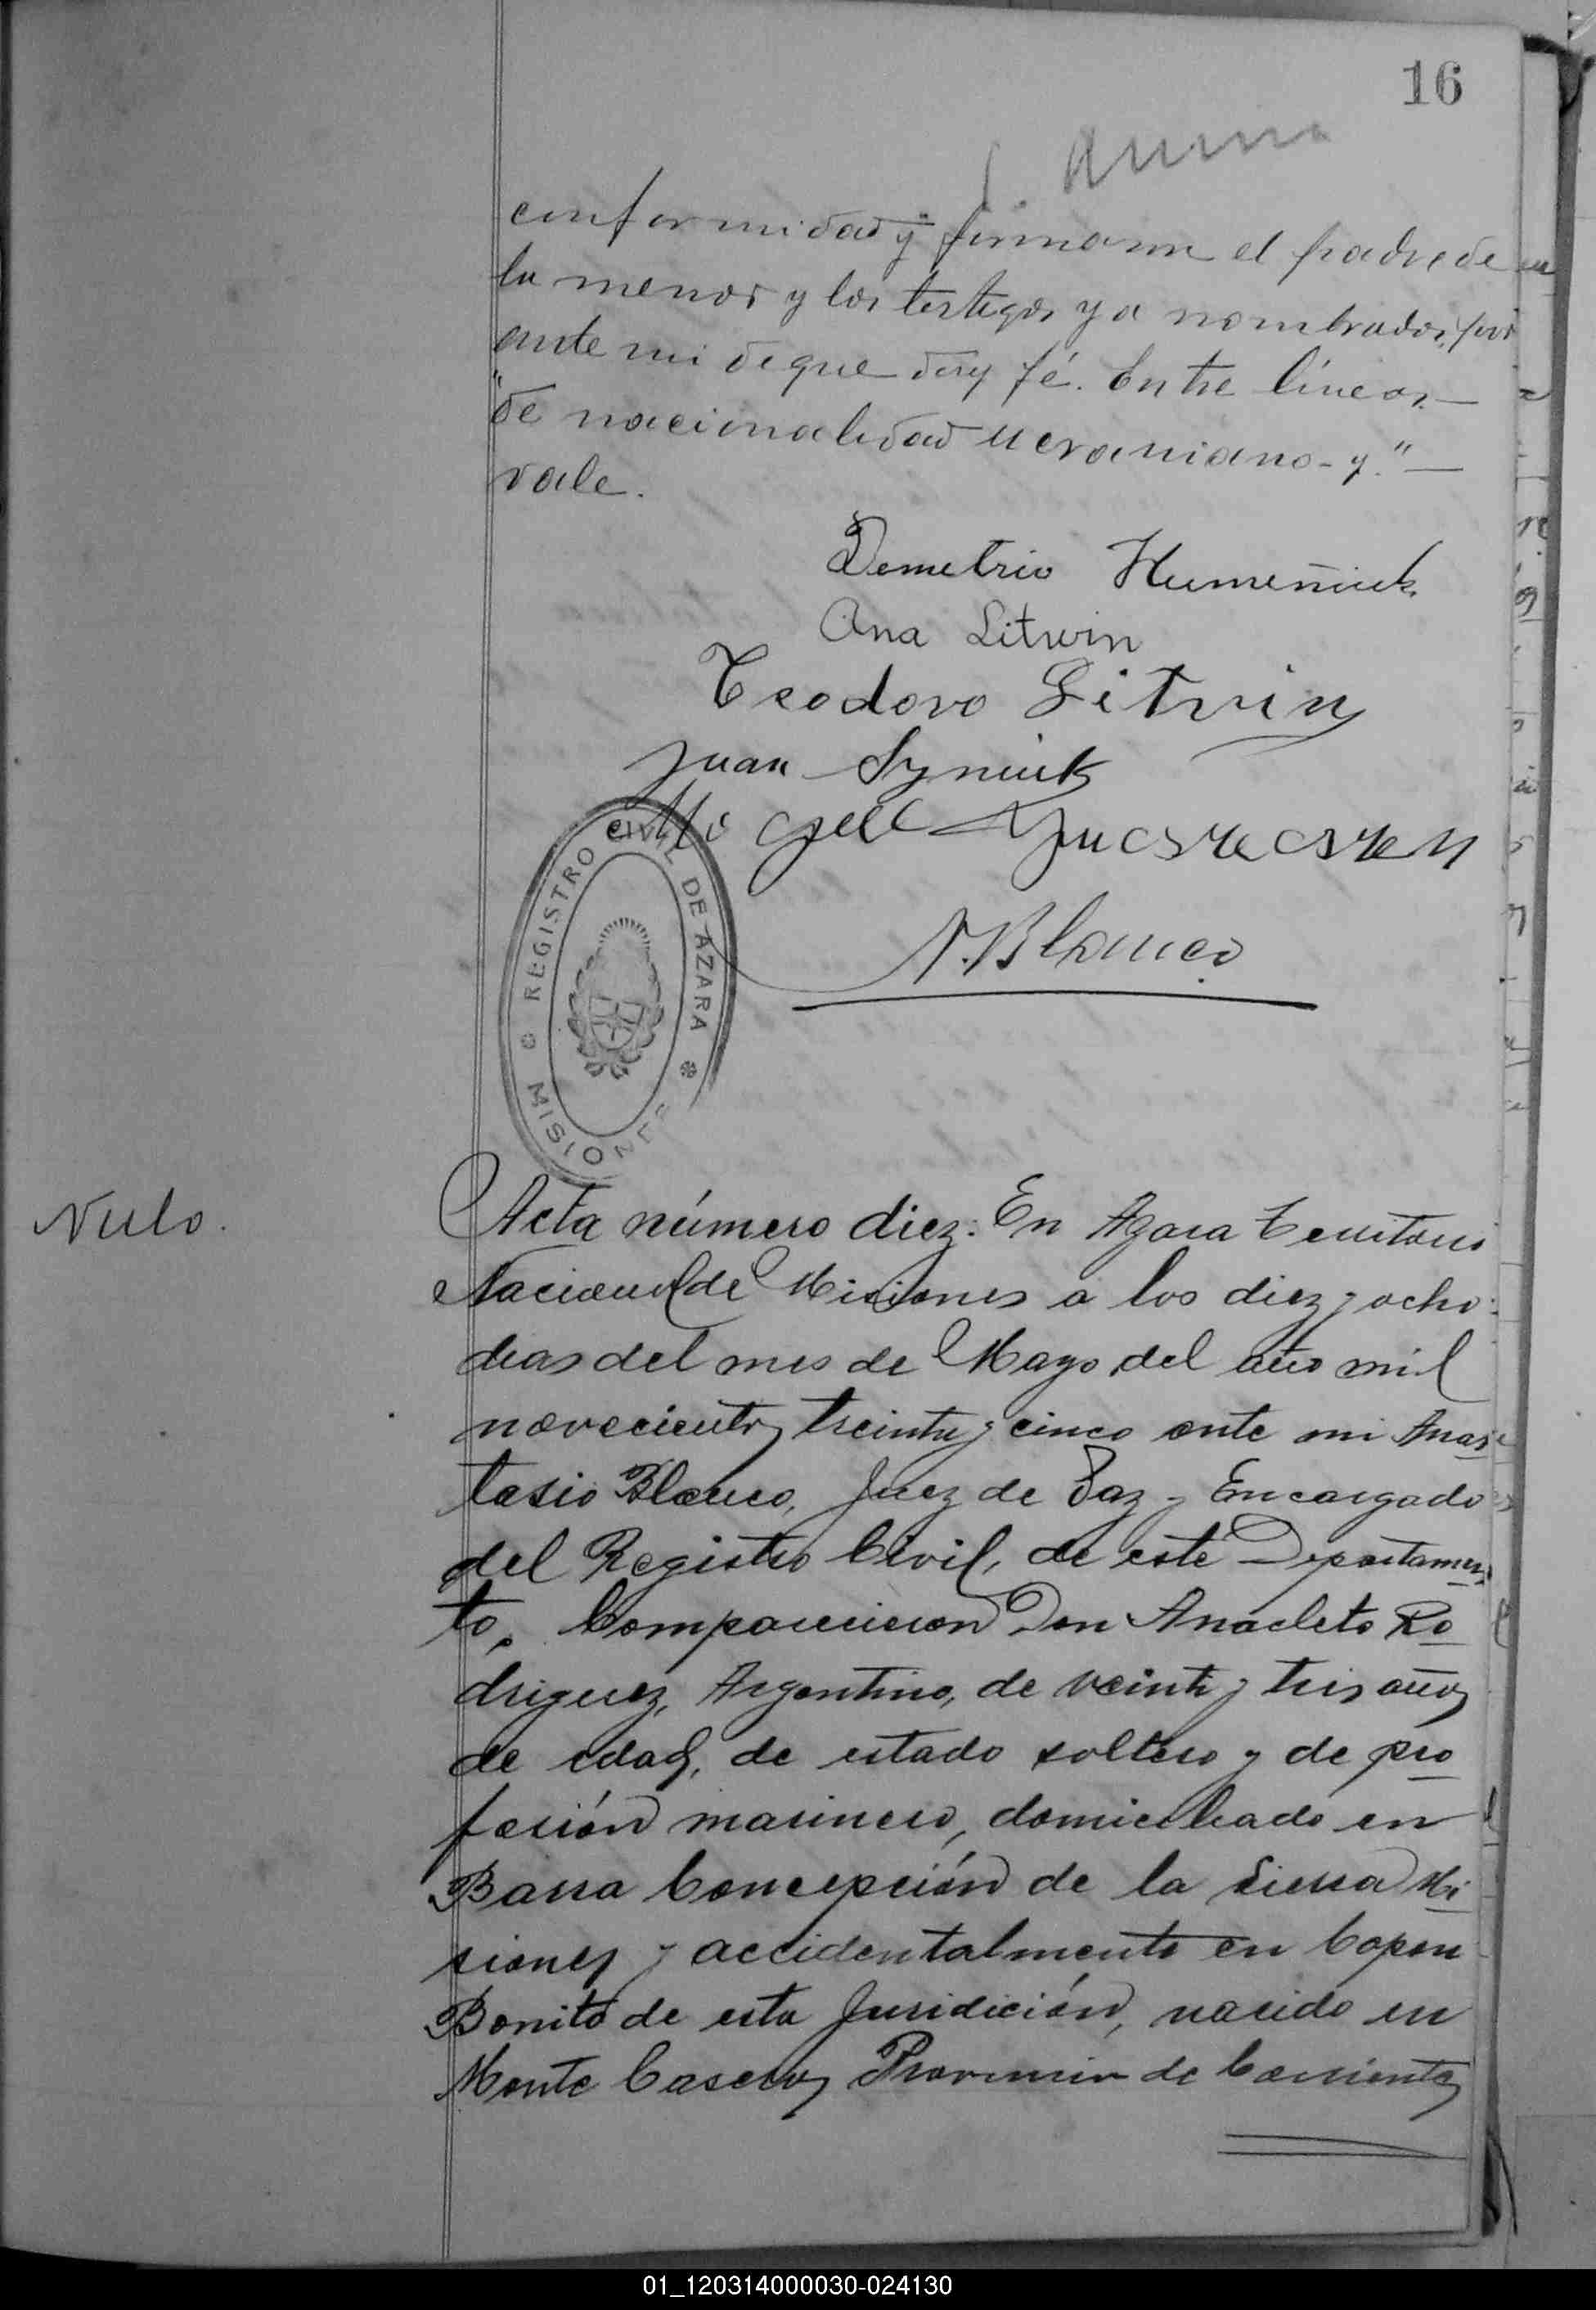 16
conformidad y firmaron el padre de
la menor y los testigos ya nombrados, por
ante mi de que doy fé. Entre líneas.—
"de nacionalidad ucraniano-y."—
vale.
Demetrio Humeñiuk
Ana Litwin
Teodoro Litwin
Juan Syniuk
A. Blanco
REGISTRO CIVIL DE AZARA
MISIONES
Nulo.
Acta número diez: En Azara Territorio
Nacional de Misiones a los diez y ocho
dias del mes de Mayo del año mil
novecientos treinta y cinco ante mi Anas
tasio Blanco, Juez de Paz y Encargado
del Registro Civil, de este Departamen
to, Comparecieron Don Anacleto Ro
driguez, Argentino, de veinte y tres años
de edad, de estado soltero y de pro
fesión marinero, domiciliado en
Barra Concepción de la Sierra Mi
siones y accidentalmente en
Bonito de esta Juridición, nacido en
Monte Caseros Provincia de Corrientes
01_120314000030-024130